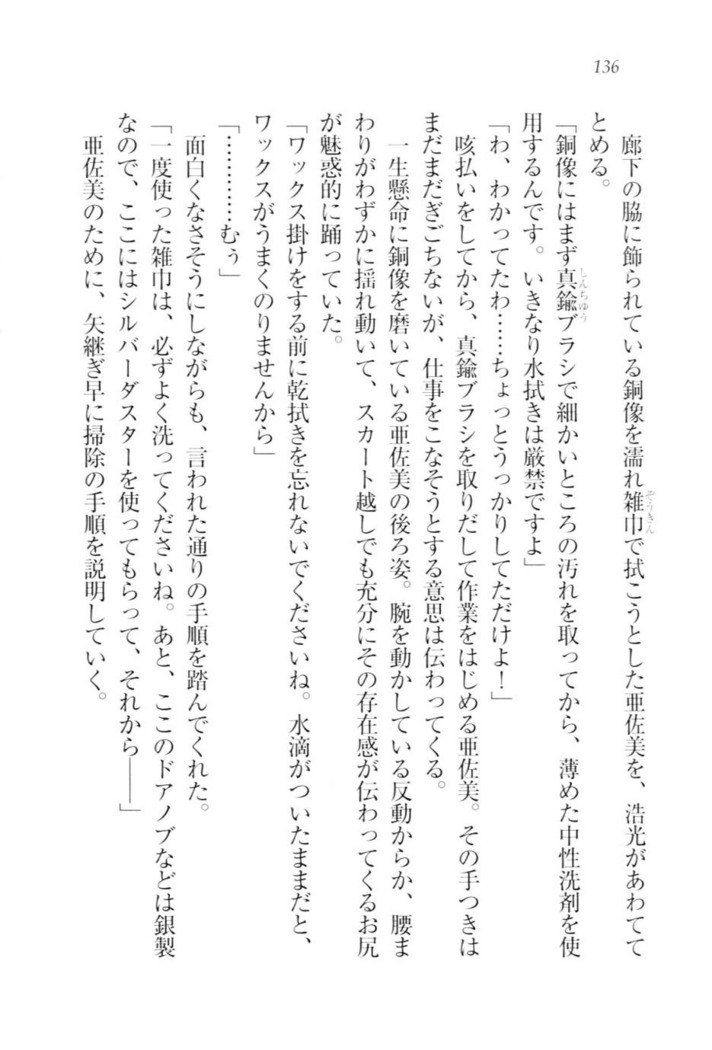 136
廊下の脇に飾られている銅像を濡れ雑巾で拭こうとした亜佐美を、浩光があわてて
とめる。
「銅像にはまず真鍮ブラシで細かいところの汚れを取ってから、薄めた中性洗剤を使
用するんです。いきなり水拭きは厳禁ですよ」
「わ、わかってたわ……ちょっとうっかりしてただけよ！」
咳払いをしてから、真鍮ブラシを取りだして作業をはじめる亜佐美。その手つきは
まだまだぎごちないが、仕事をこなそうとする意思は伝わってくる。
一生懸命に銅像を磨いている亜佐美の後ろ姿。腕を動かしている反動からか、腰ま
わりがわずかに揺れ動いて、スカート越しでも充分にその存在感が伝わってくるお尻
が魅惑的に踊っていた。
「ワックス掛けをする前に乾拭きを忘れないでくださいね。水滴がついたままだと、
ワックスがうまくのりませんから」
「…………むぅ」
面白くなさそうにしながらも、言われた通りの手順を踏んでくれた。
「一度使った雑巾は、必ずよく洗ってくださいね。あと、ここのドアノブなどは銀製
なので、ここにはシルバーダスターを使ってもらって、それから――」
亜佐美のために、矢継ぎ早に掃除の手順を説明していく。